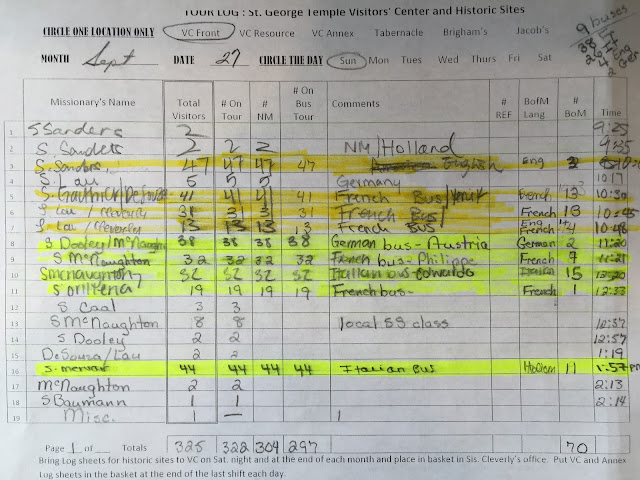 TOUR LOG : St. George Temple Visitors' Center and Historic Sites
CIRCLE ONE LOCATION ONLY VC Front VC Resource VC Annex Tabernacle Brigham's Jacob's
9 buses
MONTH Sept DATE 27 CIRCLE THE DAY Sun Mon Tues Wed Thurs Fri Sat
Missionary's Name Total Visitors # On Tour # NM # On Bus Tour Comments # REF BofM Lang # BoM Time
1 S Sanders 2 9:25
2 S. Sanders 2 2 2 NM/Holland 9:35
3 S. Sanders 47 47 47 47 English Eng
4 S Lau 5 5 5 Germany 10:17
5 41 41 41 41 French Bus/ French 13 10:30
6 S Lau / Cleverly 31 31 31 31 French Bus/ French 18 10:45
7 S Lau / Cleverly 13 13 13 13 French BUS Eng French 10:48
8 S Dooley/McNaughton 38 38 38 38 German bus-Austria German 2 11:20
9 S McNaughton 32 32 32 32 French bus-Philippe French 9 11:21
10 S mcnaughton 32 32 32 32 Italian bus- Italian 15
11 S 19 19 19 19 French bus- French 1 12:33
12 S Caal 3 3
13 S McNaughton 8 8 local SS class
14 S Dooley 2 2 12:57
15 DeSousa/Lau 2 2 1:19
16 S. 44 44 44 44 Italian Bus 11 1:57 pm
17 McNaughton 2 2 2:13
18 S Baumann 1 1 2:14
19 Misc. 1 — 1
Page 1 of Totals 325 322 304 297 70
Bring Log sheets for historic sites to VC on Sat. night and at the end of each month and place in basket in Sis. Cleverly's office. Put VC and Annex
Log sheets in the basket at the end of the last shift each day.